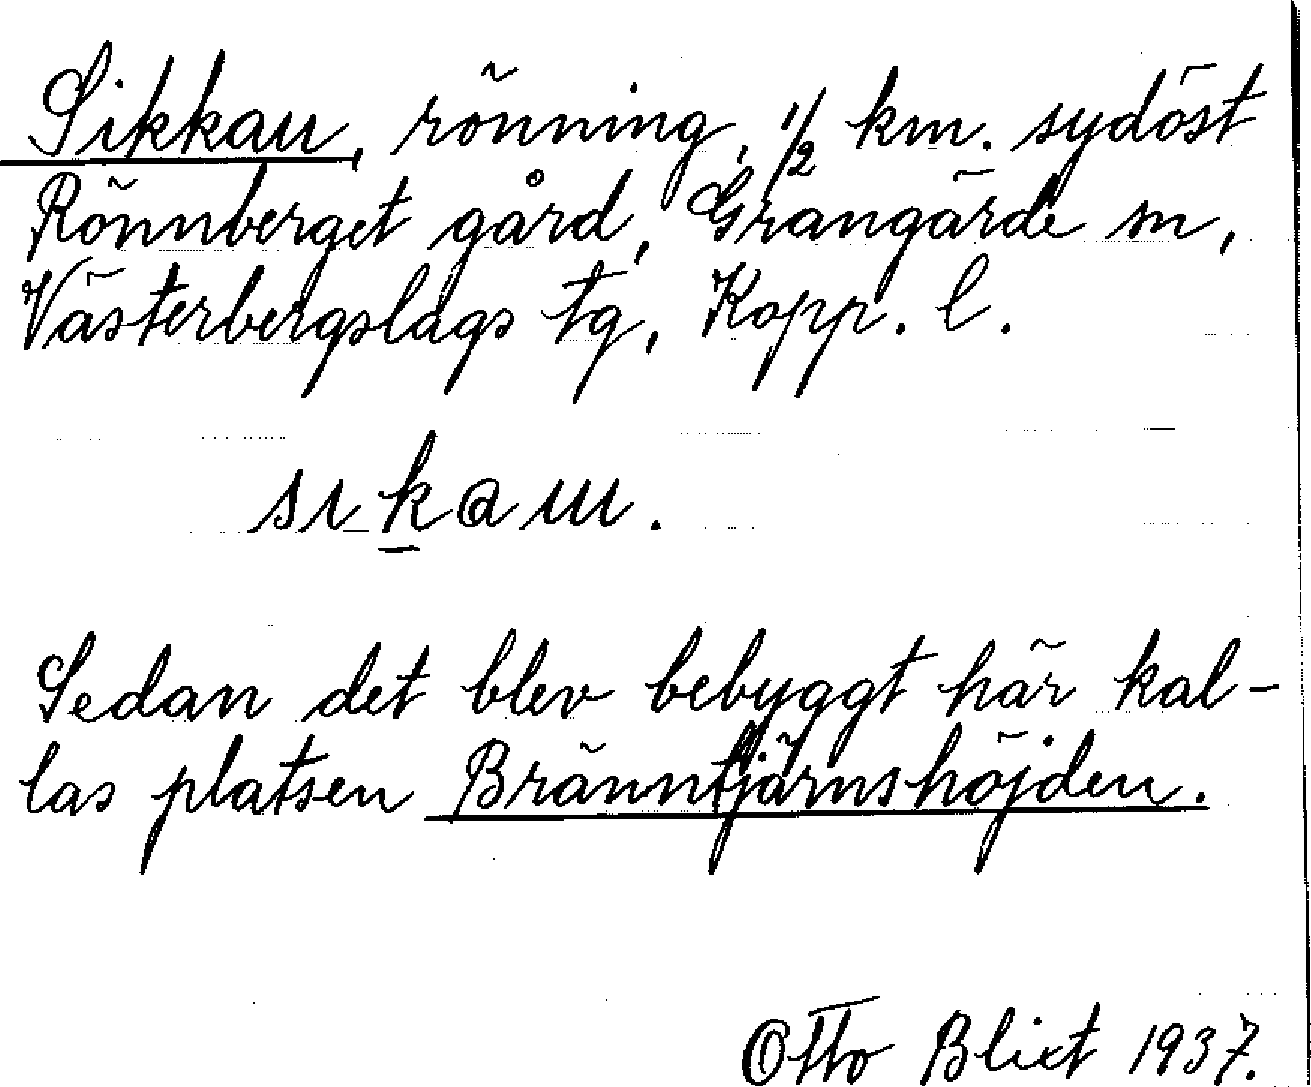 Sikkau, rönning, 1/2 km. sydöst
Rönnberget gård, Grangärde sn,
Västerbergslags tg, Kopp. l.
sık̲au.
Sedan det blev bebyggt här kal-
las platsen Bränntjärnshöjden.
Otto Blixt 1937.